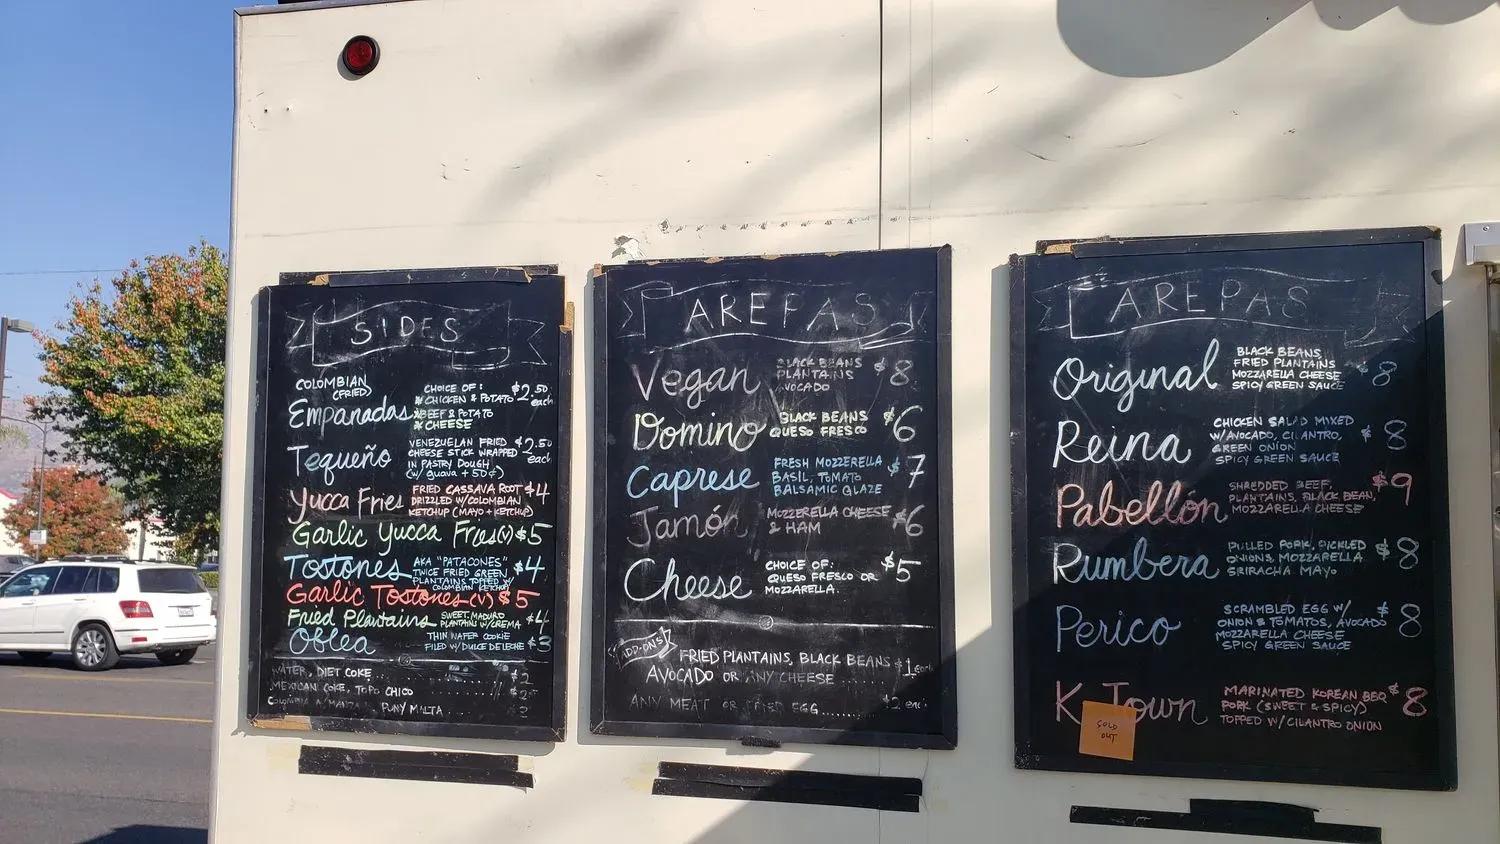 SIDES
COLOMBIAN
(FRIED)
Empanadas
CHOICE OF:
* CHICKEN & POTATO
* BEEF & POTATO
* CHEESE
$2.50
each
Tequeño
VENEZUELAN FRIED
CHEESE STICK WRAPPED
IN PASTRY DOUGH
(w/ guava + 50¢)
$2.50
each
Yucca Fries
FRIED CASSAVA ROOT
DRIZZLED W/COLOMBIAN
KETCHUP (MAYO + KETCHUP)
$4
Garlic Yucca Fries (v) $5
Tostones
AKA "PATACONES"
TWICE FRIED GREEN
PLANTAINS TOPPED W/
COLOMBIAN KETCHUP
$4
Garlic Tostones (v) $5
Fried Plantains
SWEET MADURO
PLANTAINS W/CREMA
$4
Oblea
THIN WAFER COOKIE
FILED W/DULCE DE LECHE
$3
WATER, DIET COKE $2
MEXICAN COKE, TOPO CHICO
PONY MALTA
AREPAS
Vegan
BLACK BEANS
PLANTAINS
AVOCADO
$8
Domino
BLACK BEANS
QUESO FRESCO
$6
Caprese
FRESH MOZZERELLA
BASIL, TOMATO
BALSAMIC GLAZE
$7
Jamón
MOZZERELLA CHEESE
& HAM
$6
Cheese
CHOICE OF:
QUESO FRESCO OR
MOZZARELLA.
$5
ADD-ON'S
FRIED PLANTAINS, BLACK BEANS
AVOCADO OR ANY CHEESE
$1 each
ANY MEAT OR FRIED EGG ....... $2 each
AREPAS
Original
BLACK BEANS,
FRIED PLANTAINS
MOZZARELLA CHEESE
SPICY GREEN SAUCE
$8
Reina
CHICKEN SALAD MIXED
W/AVOCADO, CILANTRO,
GREEN ONION
SPICY GREEN SAUCE
$8
Pabellón
SHREDDED BEEF,
PLANTAINS, BLACK BEAN,
MOZZARELLA CHEESE
$9
Rumbera
PULLED PORK, PICKLED
ONIONS, MOZZARELLA
SRIRACHA MAYO
$8
Perico
SCRAMBLED EGG W/
ONION & TOMATOS, AVOCADO
MOZZARELLA CHEESE
SPICY GREEN SAUCE
$8
K-Town
MARINATED KOREAN BBQ
PORK (SWEET & SPICY)
TOPPED W/CILANTRO ONION
$8
SOLD
OUT